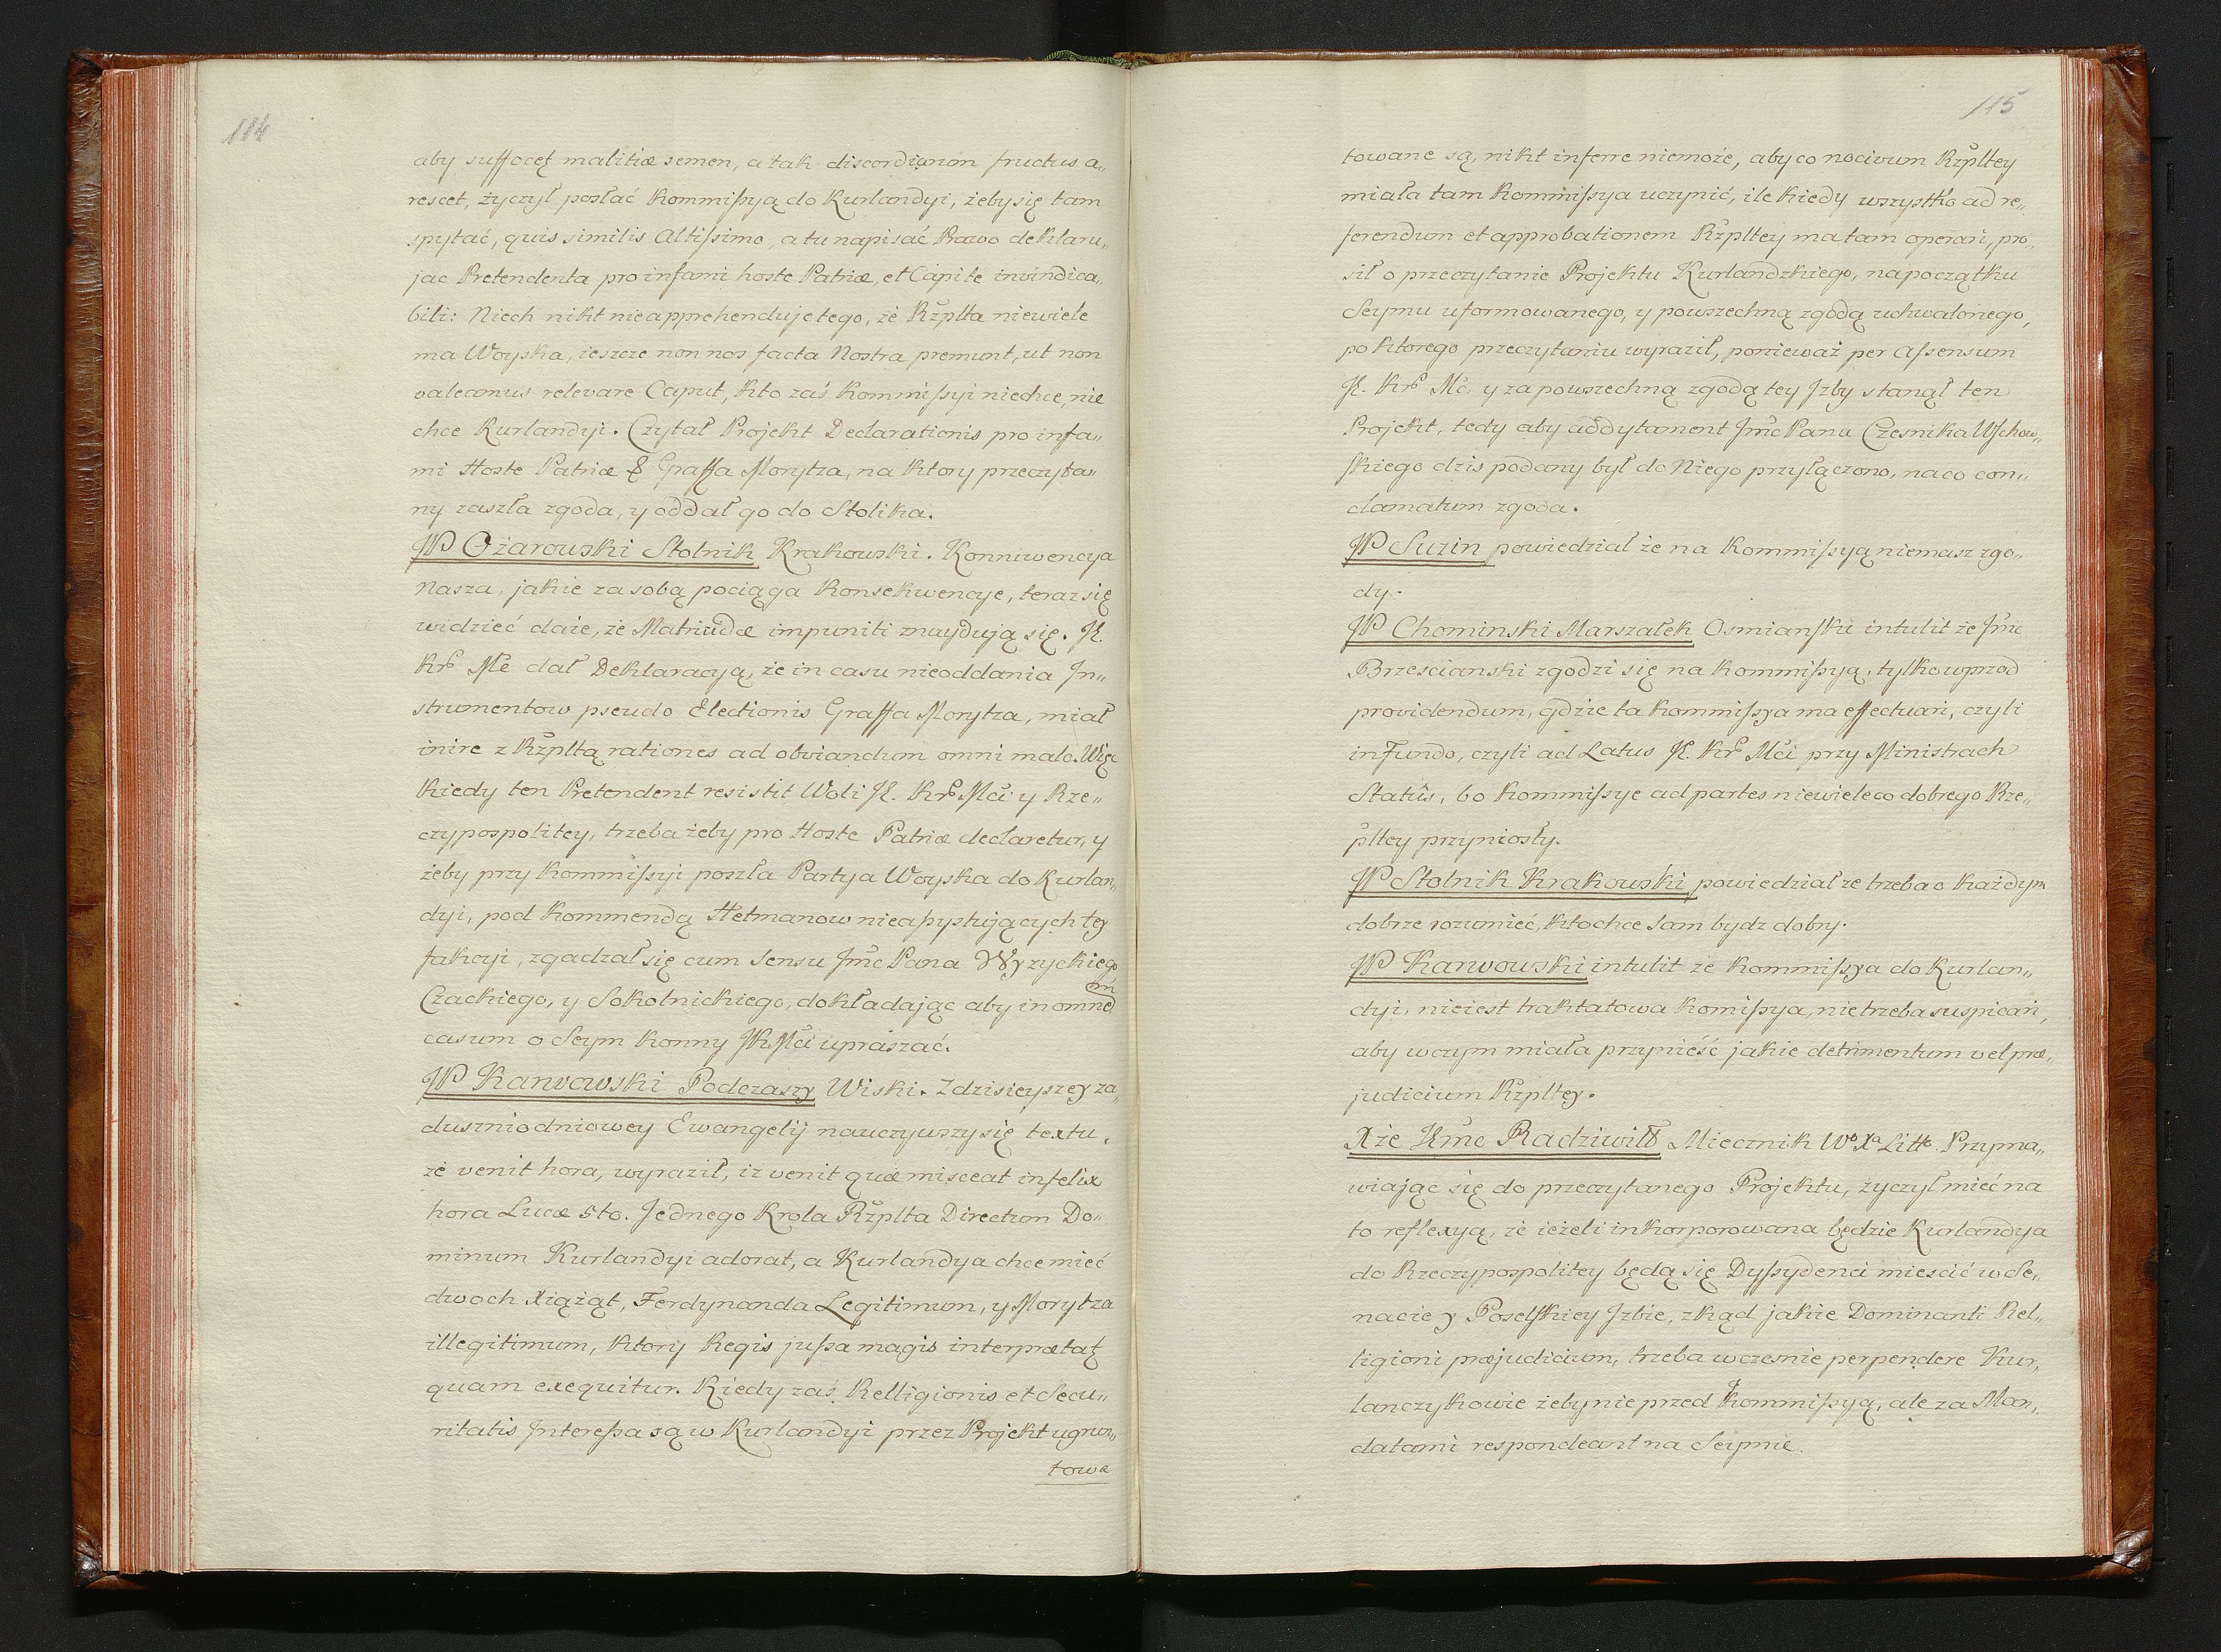 114
aby suffocet malitiæ semen, a tak discordiarum fructus a„
rescet, życzył posłać Kommissyą do Kurlandyi, żeby się tam
spytać, quis similis Altissimo, a tu napisać Prawo deklaru„
jąc Pretendenta pro infami hoste Patriæ, et Capite invindica„
bili: Niech nikt nie apprehenduje tego, że Rzplta niewiele
ma Woyska, ieszcze non nos facta Nostra premunt, ut non
valeamus relevare Caput, kto zaś Kommissyi niechce, nie
chce Kurlandyi. Czytał Projekt Declarationis pro infa„
mi Hoste Patriæ Graffa Morytza, na ktory przeczyta„
ny zaszła zgoda, y oddał go do Stolika.
JP Ożarowski Stolnik Krakowski. Konniwencya
Nasza, jakie za sobą pociąga Konsekwencye, teraz się
widzieć daie, że Matricidæ impuniti znaydują się. JK.
Kr Mć dał Deklaracyą, że in casu nieoddania In„
strumentow pseudo Electionis Graffa Morytza, miał
inire z Rzpltą rationes ad obviandum omni malo. Więc
kiedy ten Pretendent resistit Woli JK. Kr Mći y Rze„
czypospolitey, trzeba żeby pro Hoste Patriæ declaretur, y
żeby przy Kommissyi poszła Partya Woyska do Kurlan„
dyi, pod Kommendą Hetmanow nieassystujących tey
fakcyi, zgadzał się cum sensu Jmć Pana Wyzyckiego
Czackiego, y Sokolnickiego, dokładając aby in omnem
casum o Seym konny JKMći upraszać.
JP Karwowski Podczaszy Wiski. Z dzisieyszey za„
duszniodniowey Ewangelij nauczywszy się textu,
że venit hora, wyraził, iż venit quæ misceat infelix
hora Lucæ 5to. Jednego Krola Rzplta Directum Do„
minum Kurlandyi adorat, a Kurlandya chce mieć
dwoch Xiążąt, Ferdynanda Legitimum, y Morytza
illegitimum, ktory Regis jussa magis interprætat
quam exequitur. Kiedy zaś Relligionis et Secu„
ritatis Interessa są w Kurlandyi przez Projekt ugrun„
towa
115
towane są, nikt inferre niemoże, aby co nocivum Rzpltey
miała tam Kommissya uczynić, ile kiedy wszystko ad re„
ferendum et approbationem Rzpltey ma tam operari, pro„
sił o przeczytanie Projektu Kurlandzkiego, na początku
Seymu uformowanego, y powszechną zgodą uchwalonego,
po ktorego przeczytaniu wyraził, ponieważ per Assensum
JK. Kr Mći y za powszechną zgodą tey Jzby stanął ten
Projekt, tedy aby addytament Jmć Pana Czesnika Wschow„
skiego dzis podany był do Niego przyłączono, na co con„
clamatum zgoda.
JP Suzin powiedział że na Kommissyą niemasz zgo„
dy.
JP Chominski Marszałek Osmianski intulit że Jmć
Brzescianski zgodzi się na Kommissyą, tylko wprzod
providendum, gdzie ta Kommissya ma effectuari, czyli
in Fundo, czyli ad Latus JK. Kr Mći przy Ministrach
Statûs, bo Kommissye ad partes niewiele co dobrego Rze„
pltey przyniosły.
JP Stolnik Krakowski powiedział że trzeba o każdym
dobrze rozumieć, kto chce sam bydz dobry.
JP Karwowski intulit że Kommissya do Kurlan„
dyi, nieiest traktatowa Komissya, nie trzeba suspicari,
aby w czym miała przynieść jakie detrimentum vel præ„
judicium Rzpltey.
Xże Jmć Radziwiłł Miecznik Wo Xa Litto. Przyma„
wiając się do przeczytanego Projektu, życzył mieć na
to reflexyą, że ieżeli inkorporowana będzie Kurlandya
do Rzeczypospolitey będą się Dyssydenci miescić w Se„
nacie y Poselskiey Jzbie, zkąd jakie Dominanti Rel„
ligioni præjudicium, trzeba wczesnie perpendere Kur„
lanczykowie żeby nie przed Kommissyą, ale za Man„
datami respondeant na Seymie.